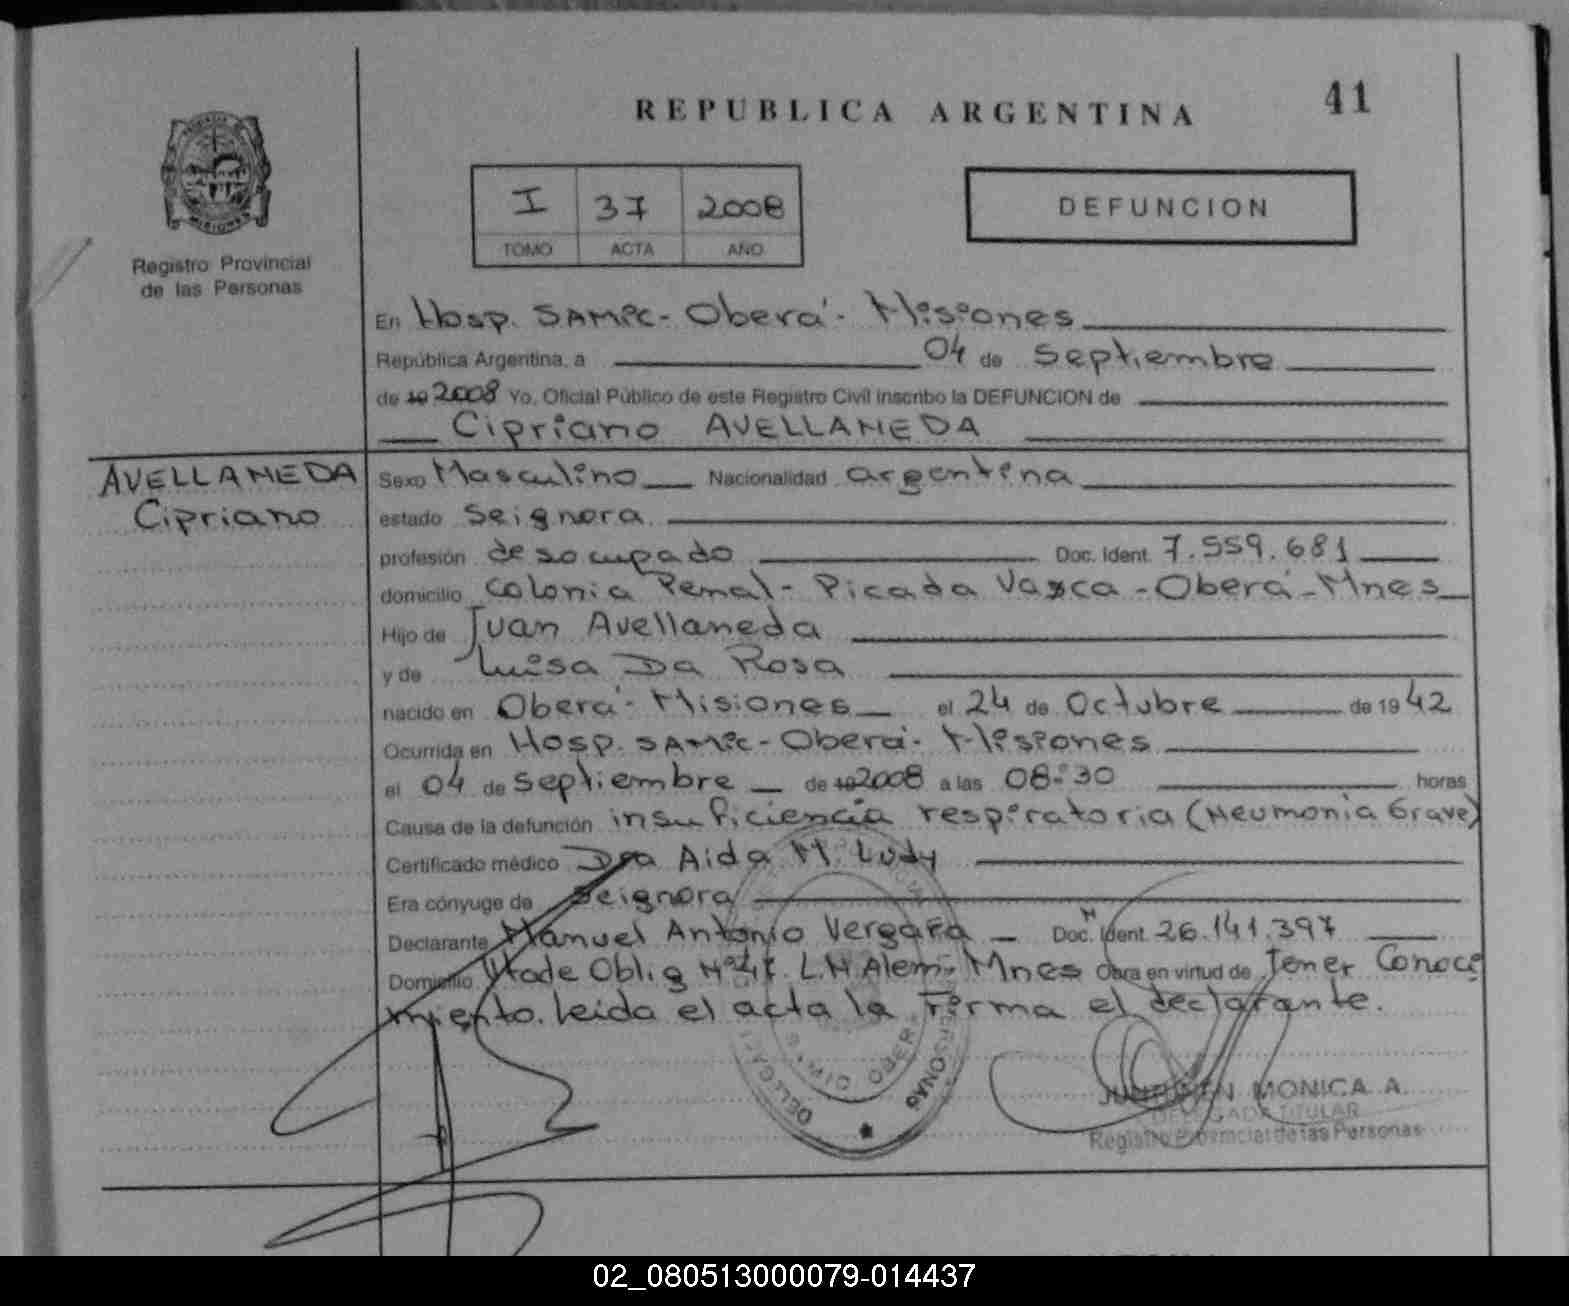 REPUBLICA ARGENTINA
41
I 37 2008
TOMO ACTA AÑO
DEFUNCION
MISIONES
Registro Provincial
de las Personas
En Hosp. SAMIC - Oberá - Misiones
República Argentina, a 04 de Septiembre
de 19 2008 Yo, Oficial Público de este Registro Civil inscribo la DEFUNCION de
Cipriano AVELLANEDA
AVELLANEDA
Cipriano
Sexo Masculino Nacionalidad argentina
estado Seignora
profesión desocupado Doc. Ident. 7.559.681
domicilio Colonia Penal - Picada Vasca - Oberá - Mnes
Hijo de Juan Avellaneda
y de Luisa Da Rosa
nacido en Oberá - Misiones el 24 de Octubre de 19 42
Ocurrida en Hosp. SAMIC - Oberá - Misiones
el 04 de Septiembre de 19 2008 a las 08:30 horas
Causa de la defunción insuficiencia respiratoria (Neumonia Grave)
Certificado médico Dra Aida M. Ludy
Era cónyuge de Seignora
Declarante Manuel Antonio Vergara Doc. Ident. 26.141.397
Domicilio Oblig L.N. Alem - Mnes Obra en virtud de Tener Conoci
miento. leida el acta la firma el declarante.
OBERA
PERSONAS
MONICA A.
TITULAR
Registro Provincial de las Personas
02_080513000079-014437